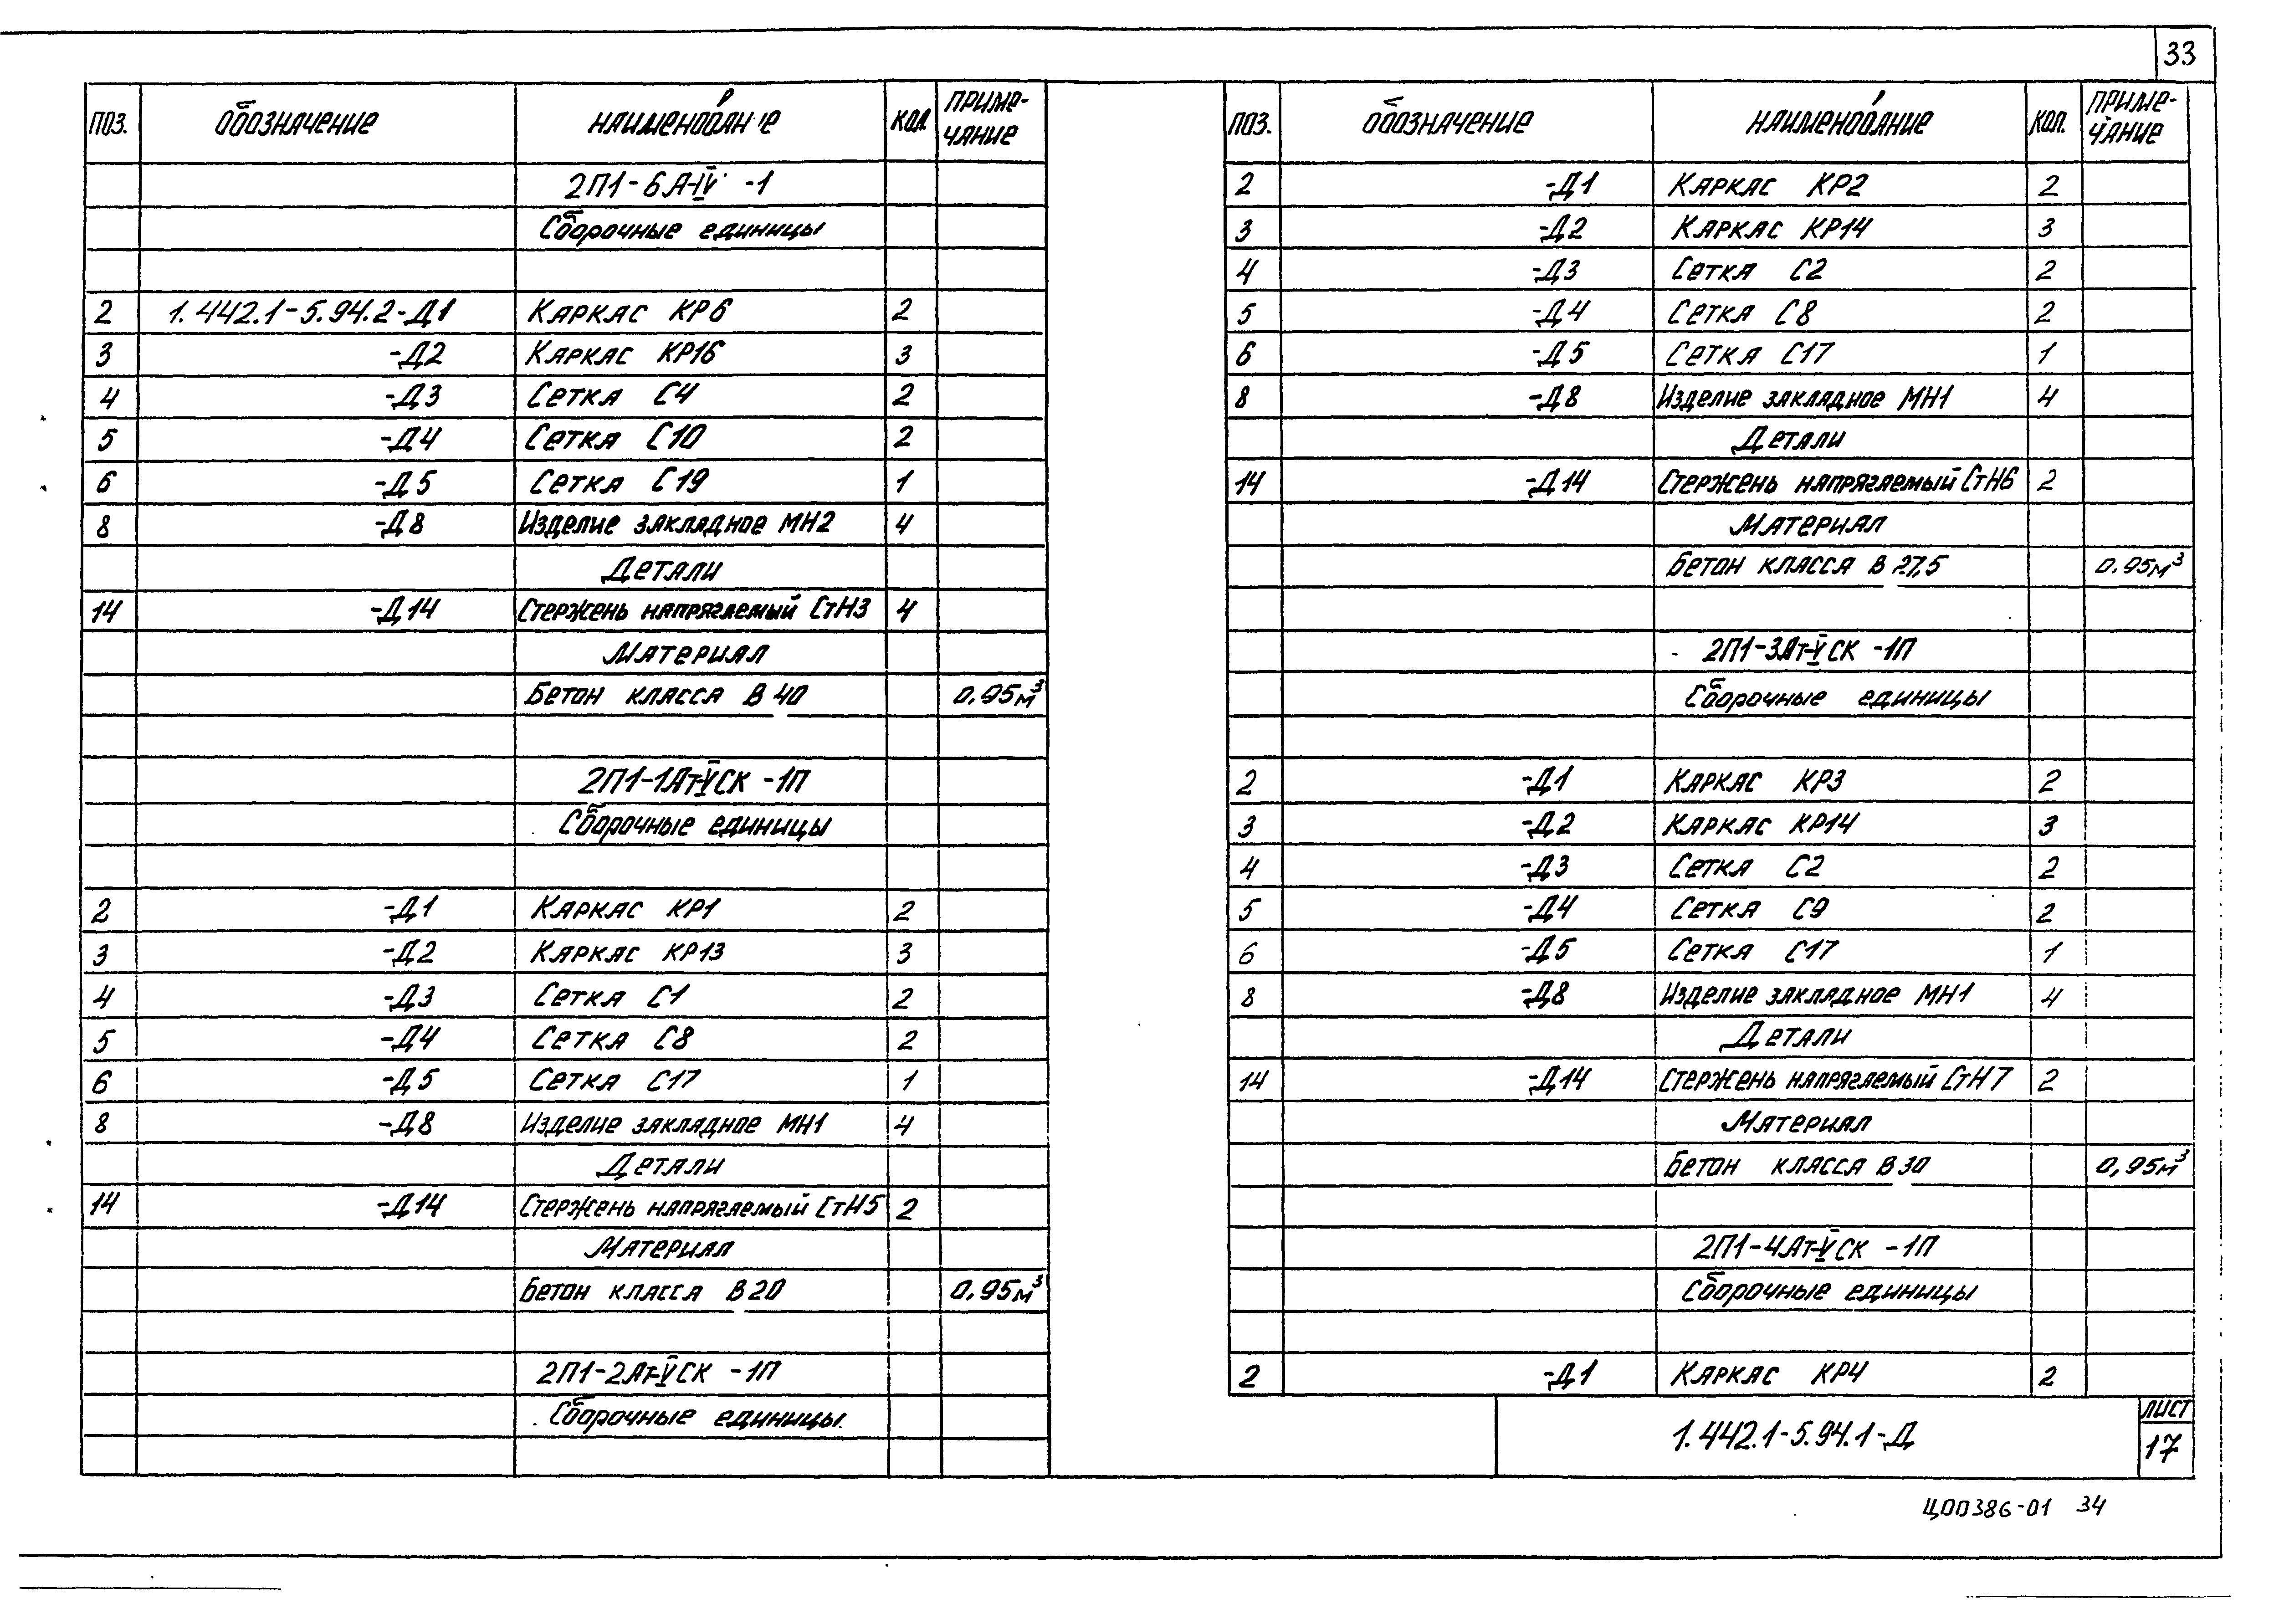 33
ПОЗ. ОБОЗНАЧЕНИЕ НАИМЕНОВАНИЕ КОЛ. ПРИМЕ-
ЧАНИЕ
2П1-6А-IV -1
Сборочные единицы
2 1.442.1-5.94.2-Д1 Каркас КР6 2
3 -Д2 Каркас КР16 3
4 -Д3 Сетка С4 2
5 -Д4 Сетка С10 2
6 -Д5 Сетка С19 1
8 -Д8 Изделие закладное МН2 4
Детали
14 -Д14 Стержень напрягаемый СтН3 4
Материал
Бетон класса В 40 0.95м³
2П1-1Ат-VСК -1П
Сборочные единицы
2 -Д1 Каркас КР1 2
3 -Д2 Каркас КР13 3
4 -Д3 Сетка С1 2
5 -Д4 Сетка С8 2
6 -Д5 Сетка С17 1
8 -Д8 Изделие закладное МН1 4
Детали
14 -Д14 Стержень напрягаемый СтН5 2
Материал
Бетон класса В20 0,95м³
2П1-2Ат-VСК -1П
Сборочные единицы.
ПОЗ. ОБОЗНАЧЕНИЕ НАИМЕНОВАНИЕ КОЛ. ПРИМЕ-
ЧАНИЕ
2 -Д1 Каркас КР2 2
3 -Д2 Каркас КР14 3
4 -Д3 Сетка С2 2
5 -Д4 Сетка С8 2
6 -Д5 Сетка С17 1
8 -Д8 Изделие закладное МН1 4
Детали
14 -Д14 Стержень напрягаемый СтН6 2
Материал
Бетон класса В 27,5 0.95м³
2П1-3Ат-VСК -1П
Сборочные единицы
2 -Д1 Каркас КР3 2
3 -Д2 Каркас КР14 3
4 -Д3 Сетка С2 2
5 -Д4 Сетка С9 2
6 -Д5 Сетка С17 1
8 -Д8 Изделие закладное МН1 4
Детали
14 -Д14 Стержень напрягаемый СтН7 2
Материал
Бетон класса В30 0,95м³
2П1-4Ат-VСК -1П
Сборочные единицы
2 -Д1 Каркас КР4 2
1.442.1-5.94.1-Д
ЛИСТ
17
Ц00386-01 34